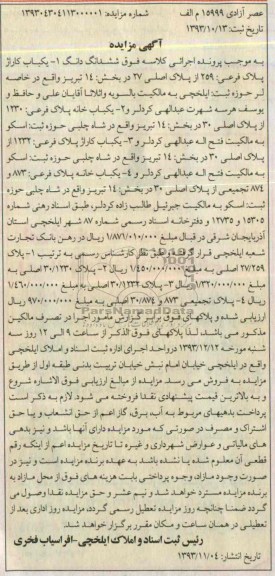 عصر آزادی ۱۵۹۹۹ م الف شماره مزایده: ۱۳۹۳۰۴۳۰۴۱۱۳۰۰۰۰۰۱
تاریخ ثبت: ۱۳۹۳/۱۰/۱۳
آگهی مزایده
به موجب پرونده اجرائی کلاسه فوق ششدانگ دانگ ۱- یکباب کاراژ
پلاک فرعی: ۲۵۹ از پلاک اصلی ۲۷ در بخش: ۱۴ تبریز واقع در خاصه
لر حوزه ثبت: ایلخچی به مالکیت بالسویه وثلاثا آقایان علی و حافظ و
یوسف هرسه شهرت عبدالهی کردلر و۲- یکباب خانه پلاک فرعی: ۱۲۳۰
از پلاک اصلی ۳۰ در بخش: ۱۴ تبریز واقع در شاه چلبی حوزه ثبت: اسکو
به مالکیت فتح اله عبدالهی کردلر و ۳- یکباب کاراژ پلاک فرعی: ۱۲۳۴ از
پلاک اصلی ۳۰ در بخش: ۱۴ تبریز واقع در شاه چلبی حوزه ثبت: اسکو
به مالکیت فتح اله عبدالهی کردلر و ۴- یکباب خانه پلاک فرعی: ۸۷۳ و
۸۷۴ تجمیعی از پلاک اصلی ۳۰ در بخش: ۱۴ تبریز واقع در شاه چلبی حوزه
ثبت: اسکو به مالکیت جبرئیل طالب زاده کردلر، طبق اسناد رهنی شماره
۱۵۳۰۵ و ۱۲۷۳۵ و دفترخانه اسناد رسمی شماره ۸۷ شهر ایلخچی استان
آذربایجان شرقی در قبال مبلغ ۱/۸۷۱/۰۱۰/۰۰۰ ریال در رهن بانک تجارت
شعبه ایلخچی قرار گرفته و طبق نظر کارشناس رسمی به ترتیب ۱- پلاک
۲۷/۲۵۹ اصلی به مبلغ ۱/۴۵۰/۰۰۰/۰۰۰ ریال ۲- پلاک ۳۰/۱۲۳۰ اصلی به
مبلغ ۱/۳۲۰/۰۰۰/۰۰۰ ریال ۳- پلاک ۳۰/۱۲۳۴ اصلی به مبلغ ۱/۴۶۰/۰۰۰/۰۰۰
ریال ۴- پلاک تجمیعی ۸۷۳ و ۳۰/۸۷۴ اصلی به مبلغ ۹۷۰/۰۰۰/۰۰۰ ریال
ارزیابی شده و پلاکهای فوق برابر گزارش مامور اجرا در تصرف مالکین
مذکور می باشد. لذا پلاکهای فوق الذکر از ساعت ۹ الی ۱۲ روز سه
شنبه مورخه ۱۳۹۳/۱۲/۱۲ در واحد اجرای اداره ثبت اسناد و املاک ایلخچی
واقع در ایلخچی خیابان امام نبش خیابان تربیت بدنی طبقه اول از طریق
مزایده به فروش می رسد. مزایده از مبالغ ارزیابی فوق الاشاره شروع
و به بالاترین قیمت پیشنهادی نقدا فروخته می شود. لازم به ذکر است
پرداخت بدهیهای مربوط به آب، برق، گاز اعم از حق انشعاب و یا حق
اشتراک و مصرف در صورتی که مورد مزایده دارای آنها باشد و نیز بدهی
های مالیاتی و عوارض شهرداری و غیره تا تاریخ مزایده اعم از اینکه رقم
قطعی آن معلوم شده یا نشده باشد به عهده برنده مزایده است و نیز در
صورت وجود مازاد، وجوه پرداختی بابت هزینه های فوق از محل مازاد به
برنده مزایده مسترد خواهد شد و نیم عشر و حق مزایده نقدا وصول می
گردد ضمنا چنانچه روز مزایده تعطیل رسمی گردد، مزایده روز اداری بعد از
تعطیلی در همان ساعت و مکان مقرر برگزار خواهد شد.
رئیس ثبت اسناد و املاک ایلخچی- افراسیاب فخری
تاریخ انتشار: ۱۳۹۳/۱۱/۰۴